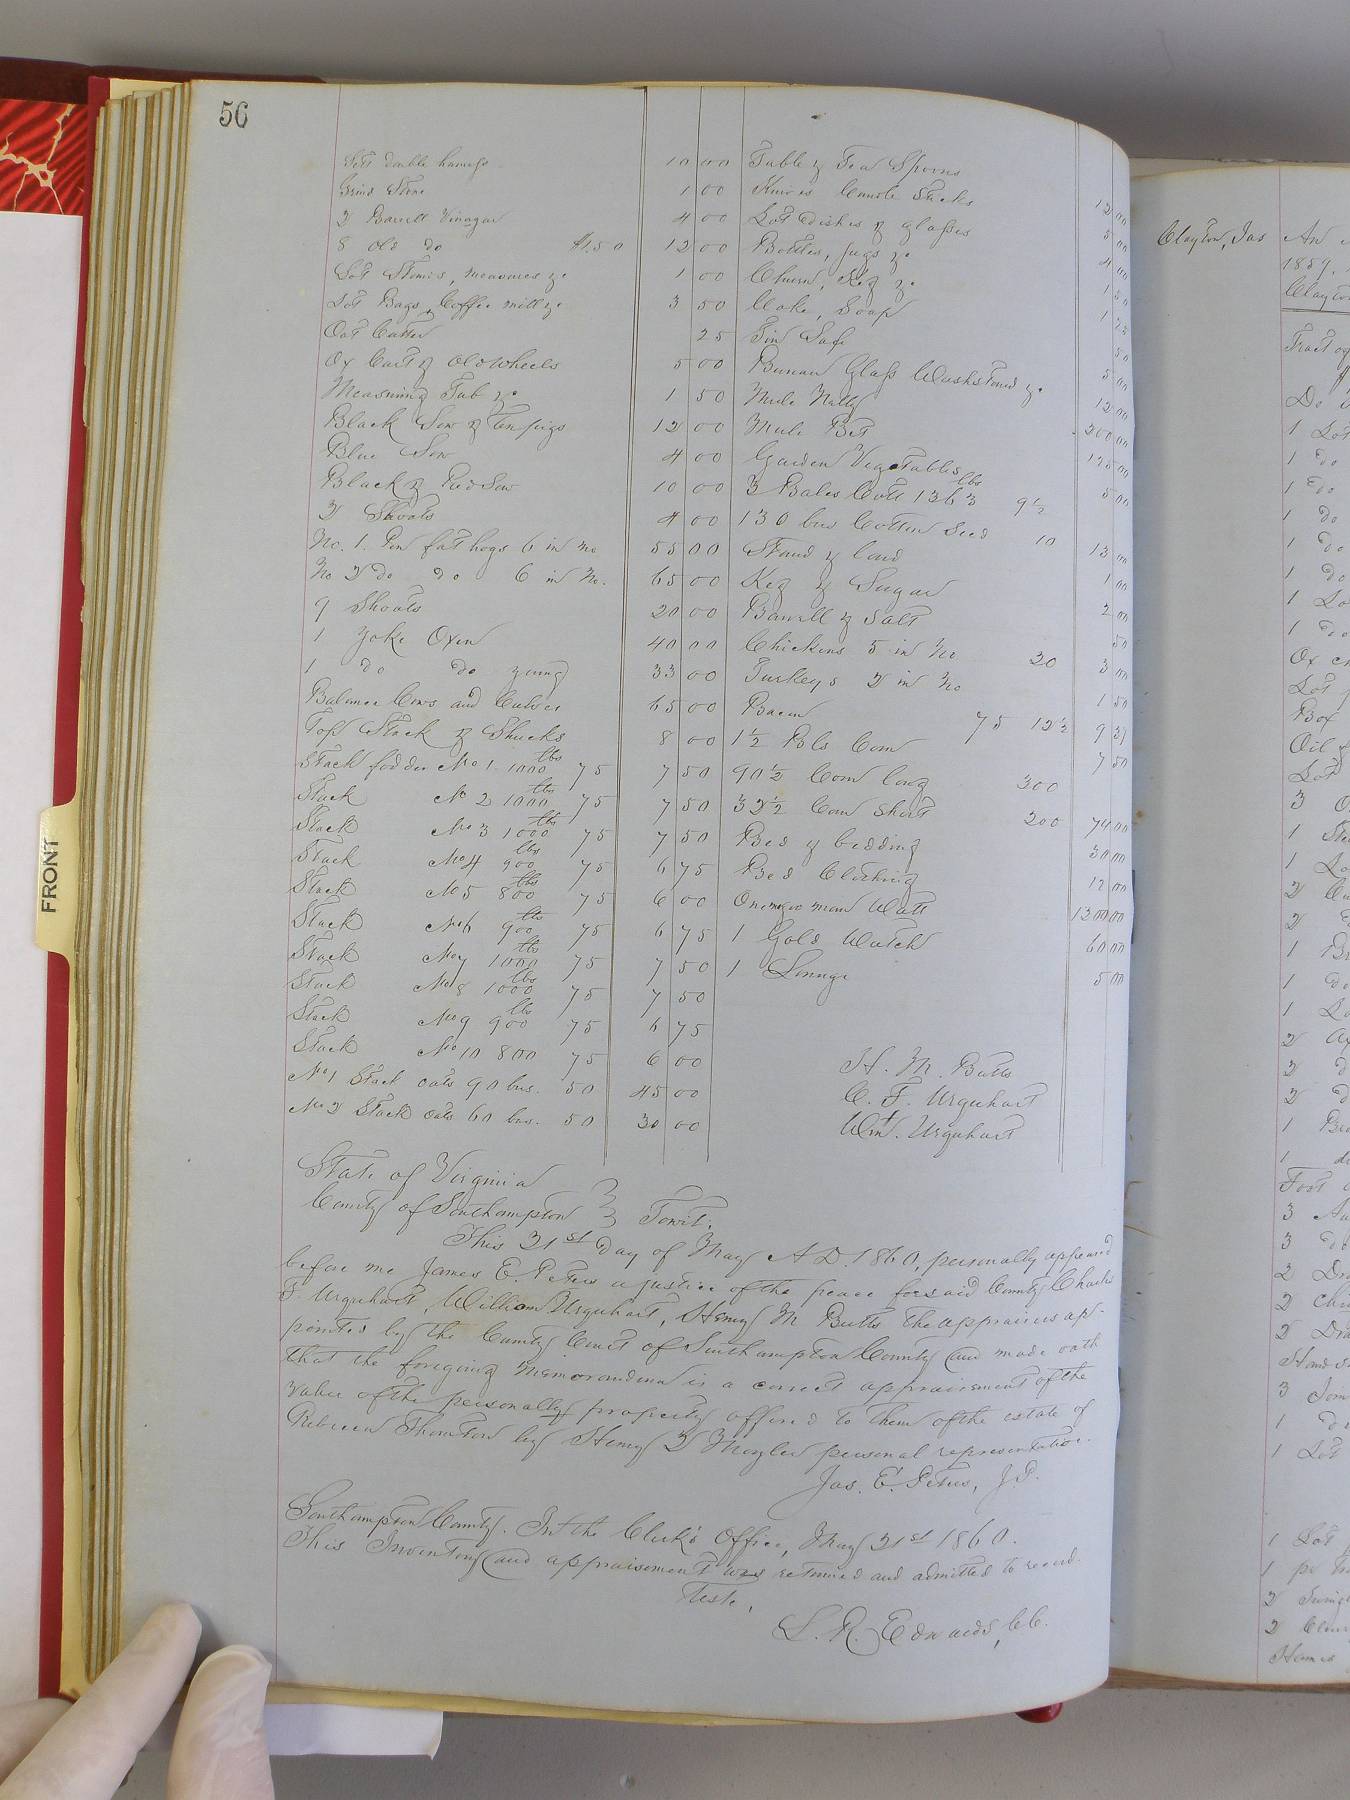 56
Sett double harness 10 00
Grind Stone 1 00
2 Barrell Vinagar 4 00
8 old do $1.50 12 00
Lot Stemes, measures &c 1 00
Lot Bags, Coffee mill &c 3 50
Oat Cutter 25
Ox Cart & old wheels 5 00
Measuring Tub &c 1 50
Black Sow & ten pigs 12 00
Blue Sow 4 00
Black & Red Sow 10 00
2 Shoats 4 00
No. 1. Pen fat hogs 6 in no 55 00
No 2 do do 6 in No. 65 00
9 Shoats 20 00
1 Yoke Oxen 40 00
1 do do young 33 00
Balance Cows and Calves 65 00
Top Stack & Shucks 8 00
Stack fodder No 1 1000 lbs 75 7 50
Stack No 2 1000 lbs 75 7 50
Stack No 3 1000 lbs 75 7 50
Stack No 4 900 lbs 75 6 75
Stack No 5 800 lbs 75 6 00
Stack No 6 900 lbs 75 6 75
Stack No 7 1000 lbs 75 7 50
Stack No 8 1000 lbs 75 7 50
Stack No 9 900 lbs 75 6 75
Stack No 10 800 75 6 00
No 1 Stack oats 90 bus. 50 45 00
No 2 Stack oats 60 bus. 50 30 00
Table & Tea Spoons 12 00
Knives Candle Sticks 5 00
Lot Dishes & glasses 4 00
Bottles, jugs &c 1 50
Churn, Keg &c 1 25
Coke, Soap 50
Tin Safe 5 00
Bureau Glass Washstand &c 12 00
Mule Nelly 200 00
Mule Bet 175 00
Garden Vegetables 5 00
3 Bales Cott 1363 lbs 9½
130 bus Cotton Seed 10 13 00
Stand & lard 1 00
Keg & Sugar 2 00
Barrell & Salt 50
Chickens 5 in No 20 3 00
Turkeys 2 in No 1 50
Bacon 75 12½ 9 37
1½ Bls Corn 7 50
90½ Corn long 300
32½ Corn Short 200 74 00
Bed & bedding 30 00
Bed Clothing 12 00
One negro man Watt 1300 00
1 Gold Watch 60 00
1 Lounge 5 00
H. M. Butts
C. F. Urquhart
Wm. Urquhart
State of Virginia
County of Southampton } Towit:
This 21st day of May A D. 1860, personally appeared
before me James E. Peters a justice of the peace foresaid County Charles
F. Urquhart, William Urquhart, Henry M Butts the appraisers ap-
pointed by the County Court of Southampton County and made oath
that the foregoing memorandum is a correct appraisement of the
value of the personally property offered to them of the estate of
Rebecca Thornton by Henry D personal representative.
Jas. E. Peters, J.P.
Southampton County. In the Clerk's Office, May 21st 1860.
This Inventory and appraisement was returned and admitted to record.
Teste,
L. R. Edwards, CC.
FRONT
Clayton, Jas
1859,
Clayton
Tract of
1 Lot
1 do
1 do
1 do
1 do
1 do
1 do
Box
3
1
2
1 do
3
2
3
1 Lot
1 Lot